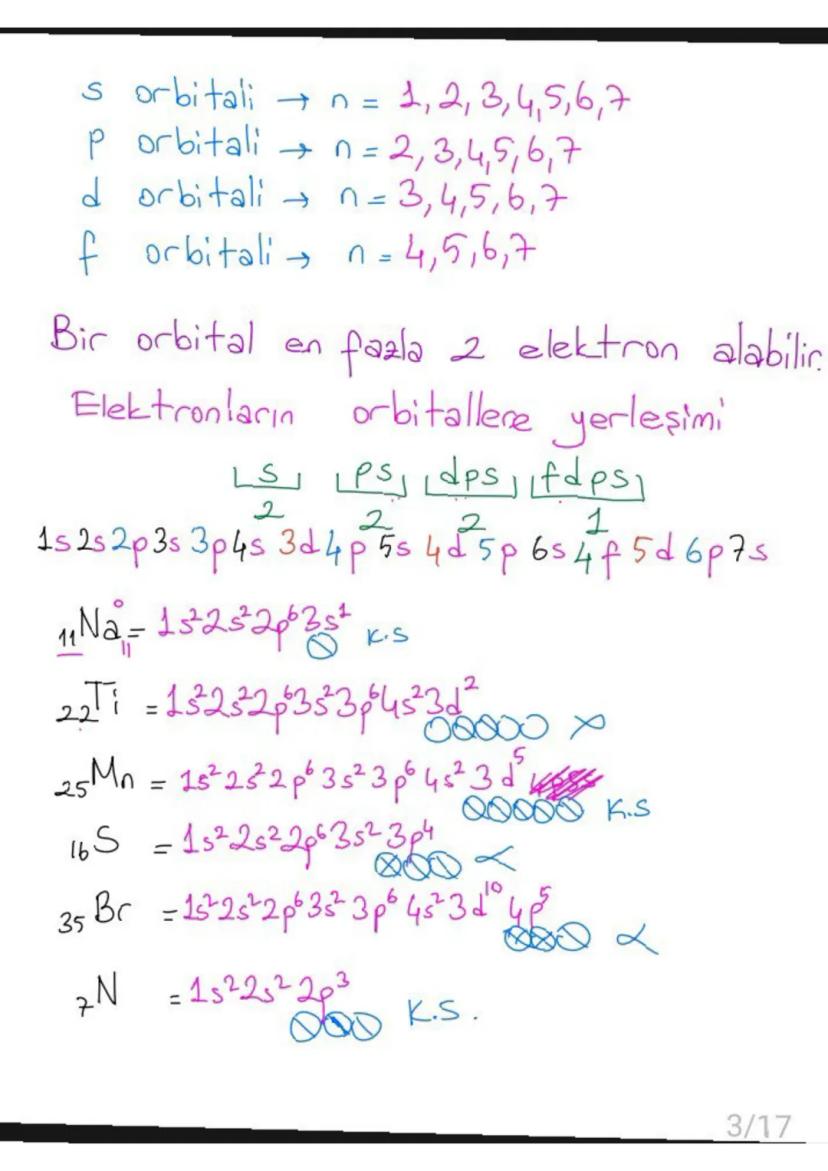 s orbitali → n = 1,2,3,4,5,6,7
p orbitali → n = 2,3,4,5,6,7
d orbitali → n = 3,4,5,6,7
f orbitali → n = 4,5,6,7
Bir orbital en fazla 2 elektron alabilir.
Elektronların orbitallere yerleşimi
s ps dps fdps
2 2 2 1
1s 2s 2p 3s 3p 4s 3d 4p 5s 4d 5p 6s 4f 5d 6p 7s
₁₁Na⁰ = 1s²2s²2p⁶3s¹ K.S
11
₂₂Ti = 1s²2s²2p⁶3s²3p⁶4s²3d²
₂₅Mn = 1s²2s²2p⁶3s²3p⁶4s²3d⁵ K.S
₁₆S = 1s²2s²2p⁶3s²3p⁴
₃₅Br = 1s²2s²2p⁶3s²3p⁶4s²3d¹⁰4p⁵
₇N = 1s²2s²2p³ K.S.
3/17